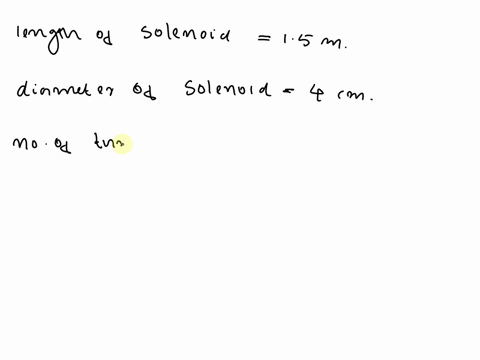 length of solenoid = 1.5 m.
diameter of solenoid = 4 cm.
no. of tur